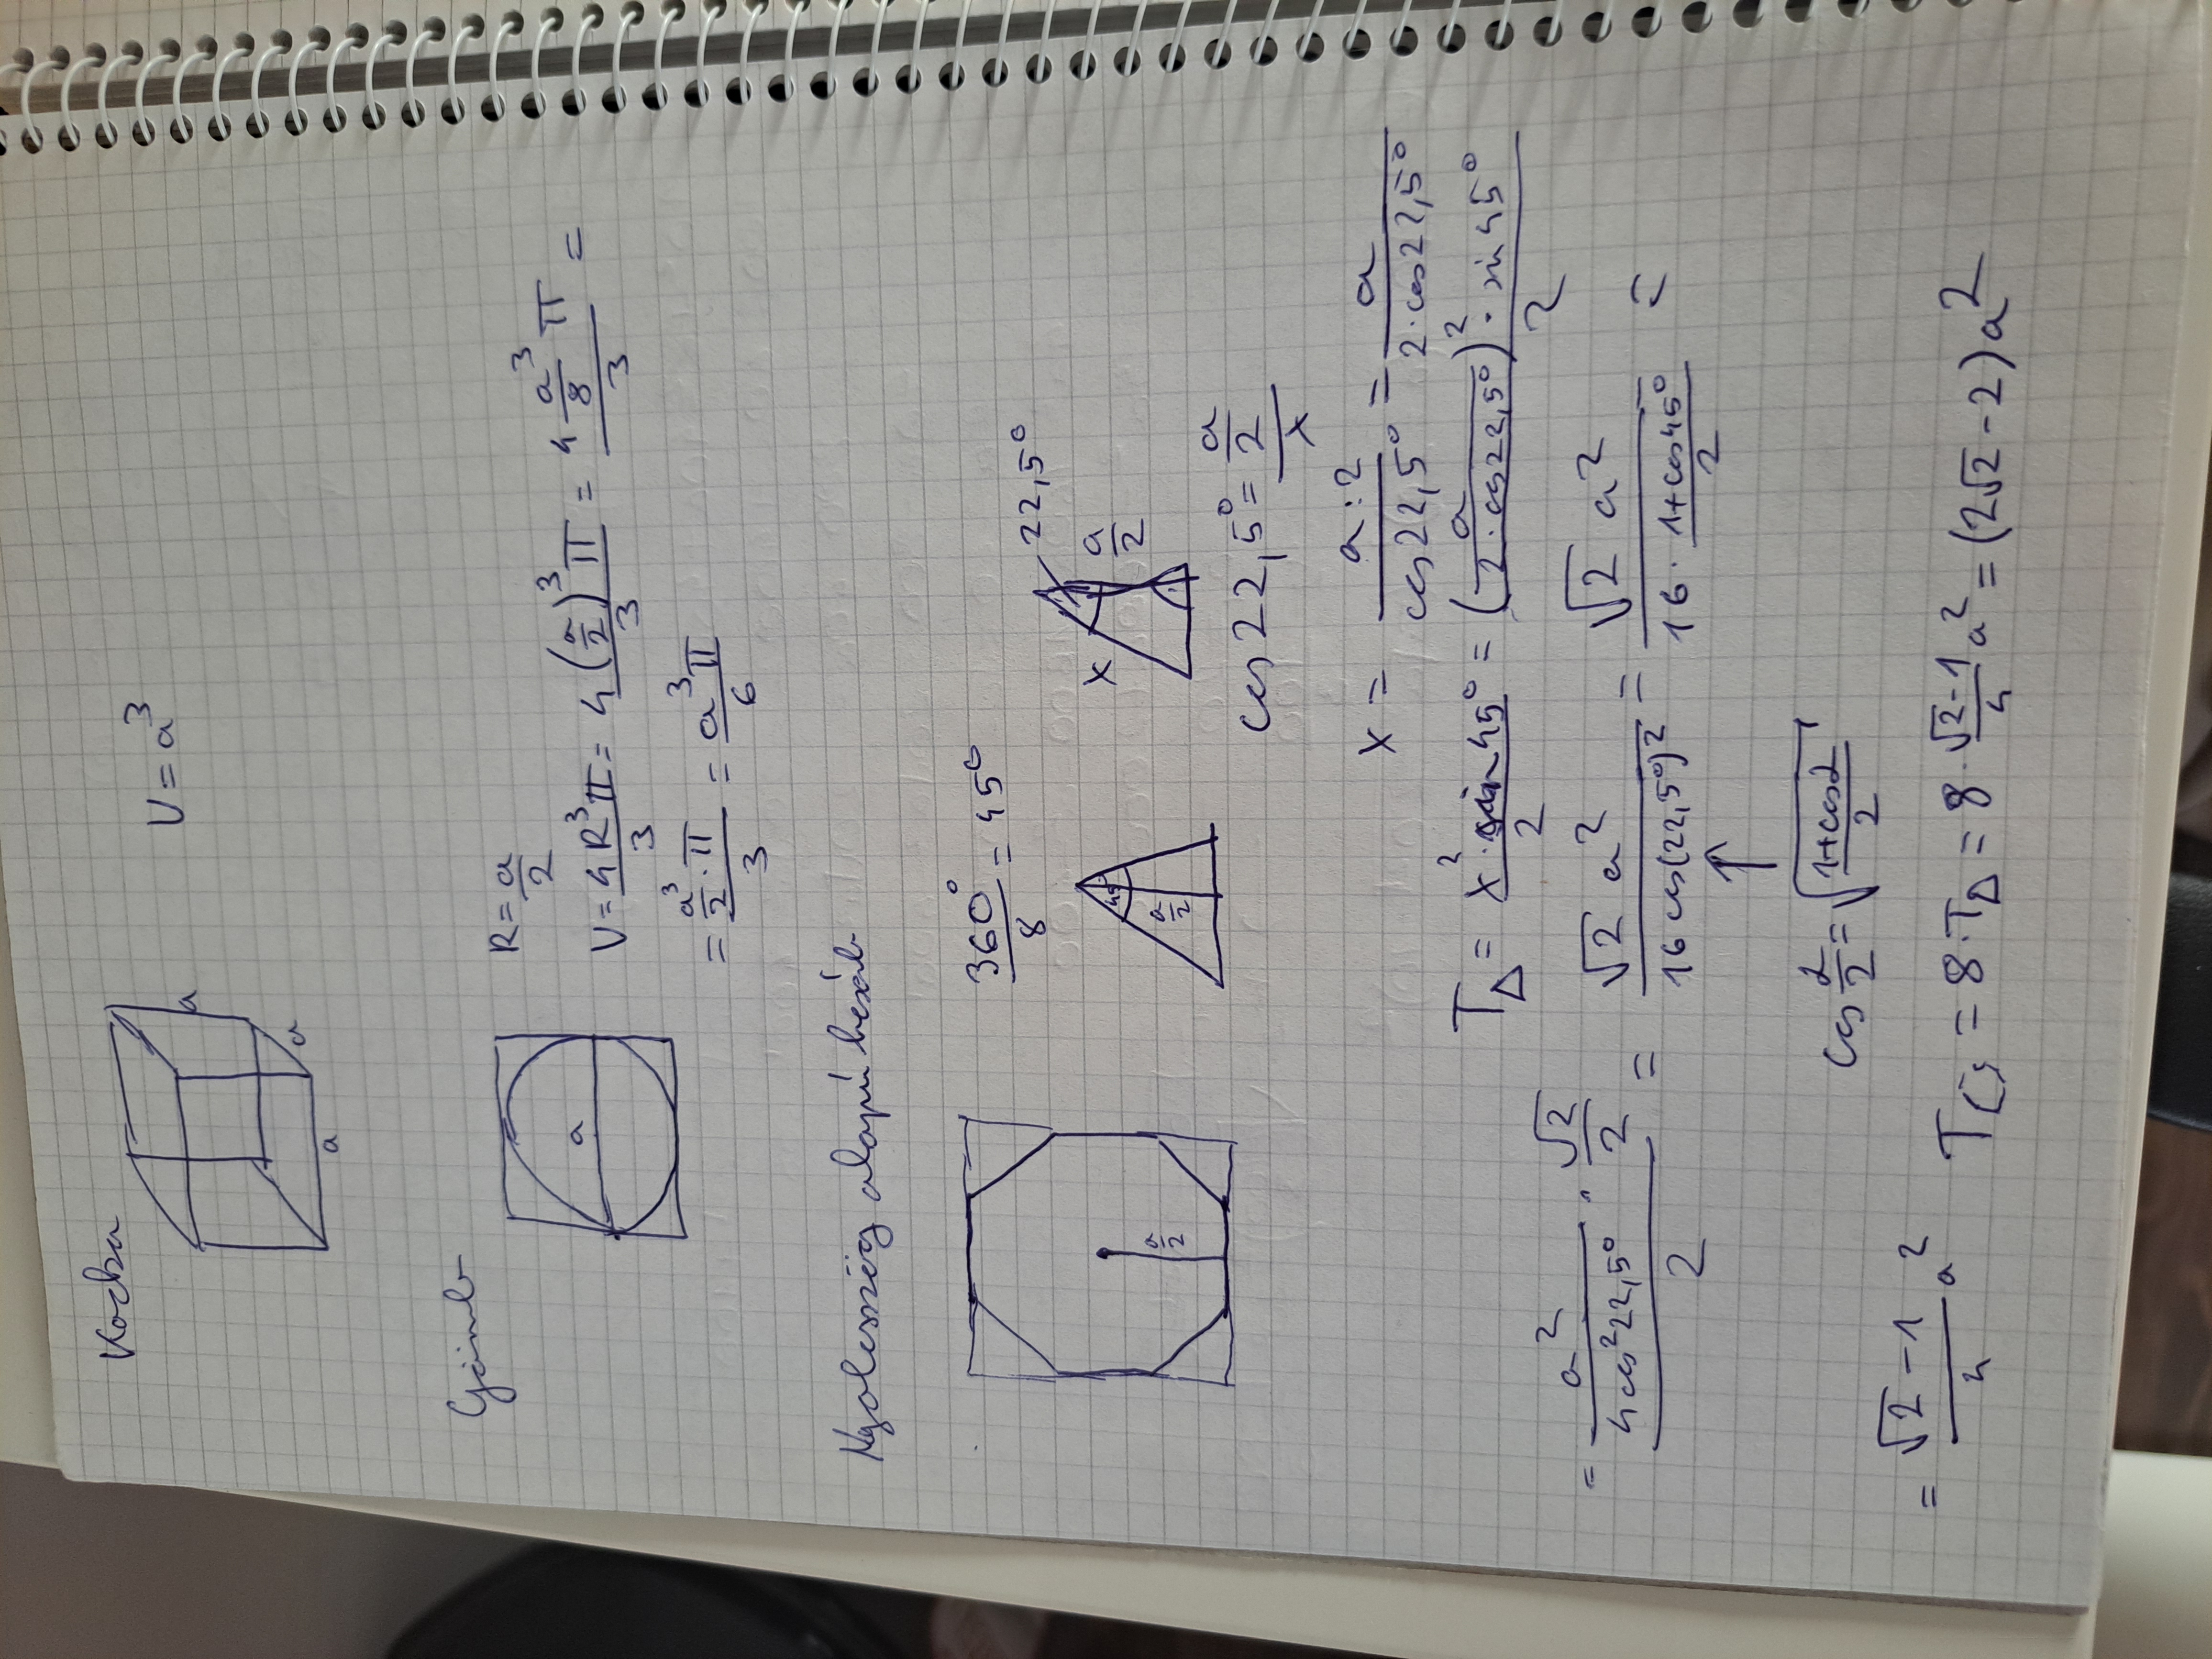 Kocka
V = a³
a
a
a
Gömb
a
R = a/2
V = 4R³π/3 = 4(a/2)³π/3 = 4 a³/8 π/3 =
= a³/2 · π/3 = a³π/6
Nyolcszög alapú hasáb
360°/8 = 45°
a/2
45°
a/2
x
22,5°
a/2
cos 22,5° = a/2/x
x = a:2/cos 22,5° = a/2·cos 22,5°
T△ = x²·sin 45°/2 = (a/2·cos 22,5°)² · sin 45°/2
= a²/4cos²22,5° · √2/2/2 = √2 a²/16 cos(22,5°)² = √2 a²/16 · 1+cos45°/2 =
↑
cos α/2 = √1+cosα/2
= √2-1/4 a²
T = 8·T△ = 8 · √2-1/4 a² = (2√2-2)a²